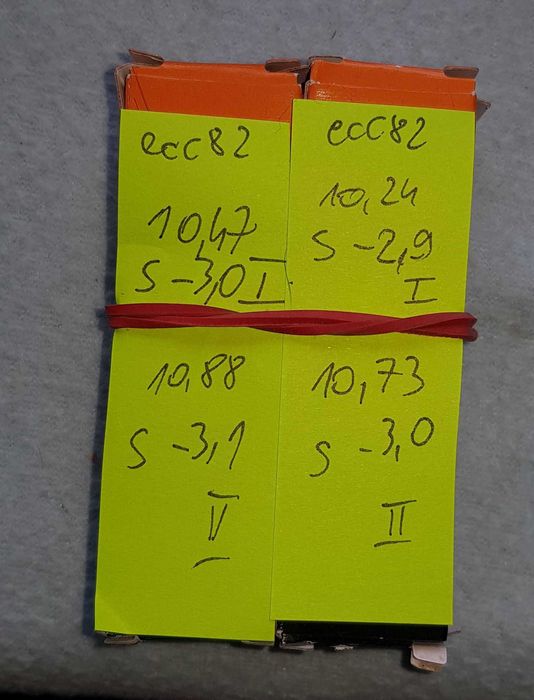 ecc82
10,47
S -3,0 I
10,88
S -3,1
II
ecc82
10,24
S -2,9
I
10,73
S -3,0
II